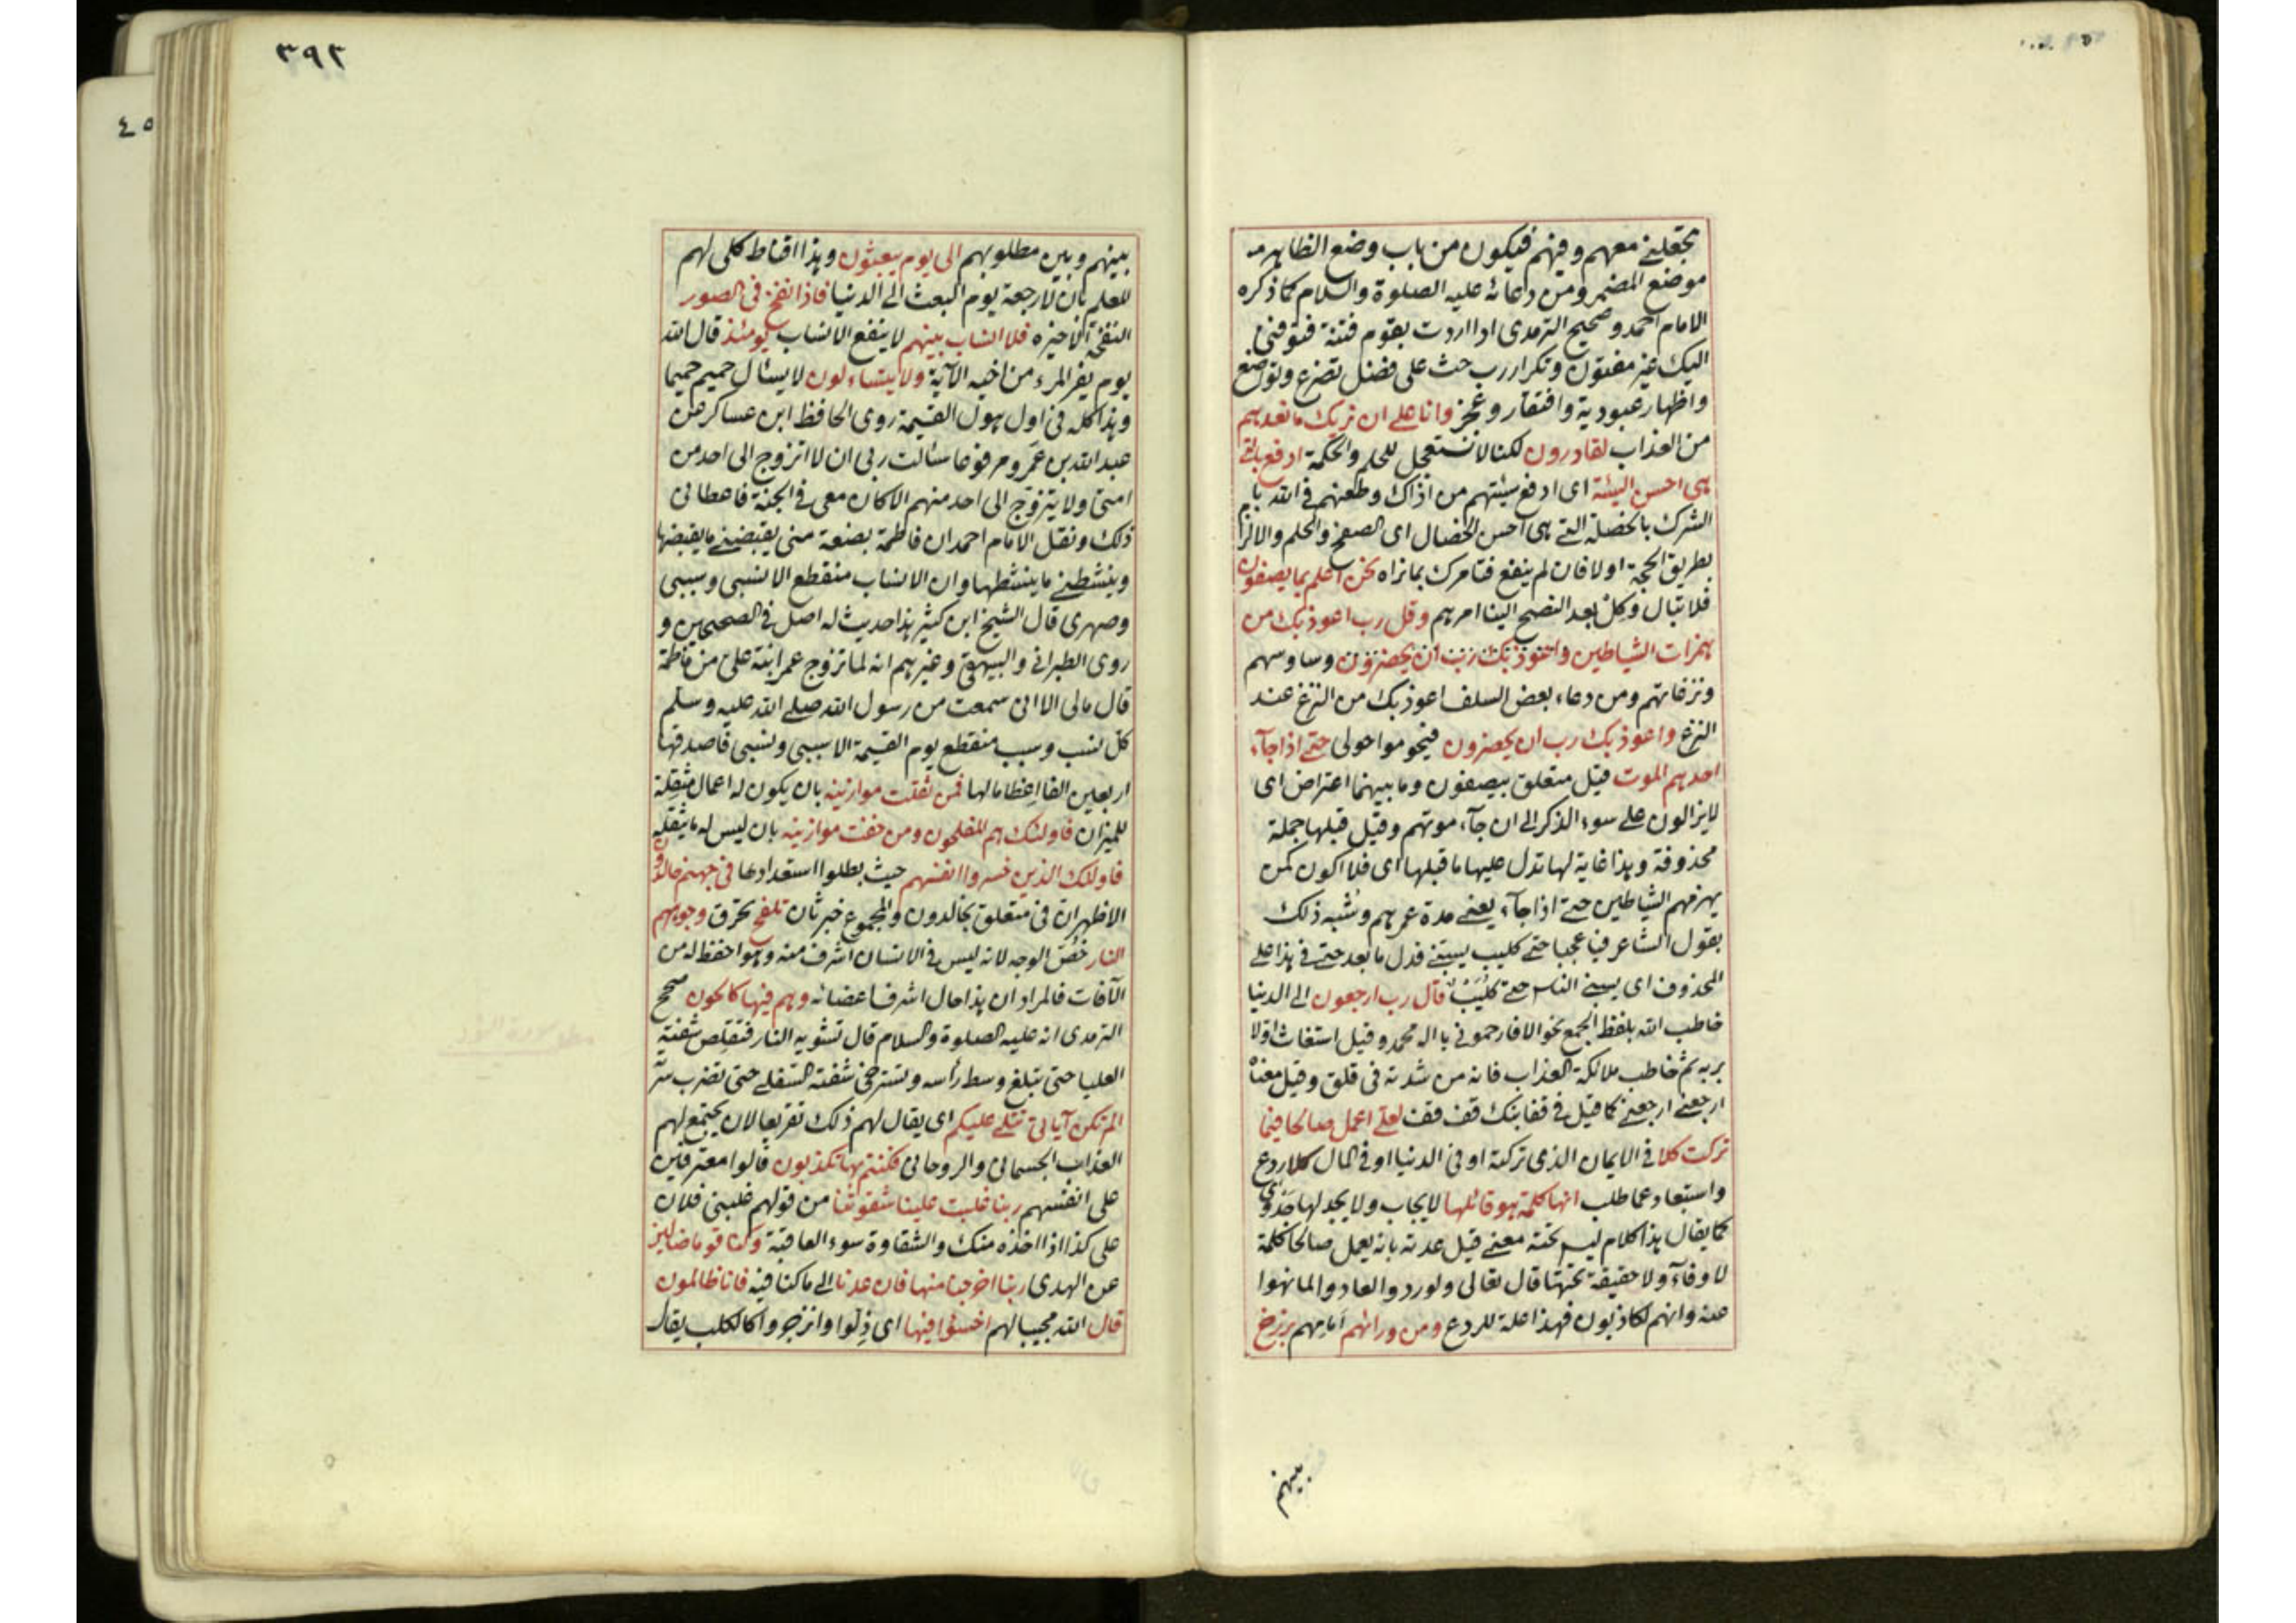 تجعلنے معهم وفيهم فيكون من باب وضع الظاهر
موضع المضمر ومن دعائه عليه الصلوة والسلام كما ذكره
الامام احمد وصحيح الترمدى اذا اردت بقوم فتنة فتوفنى
اليك غير مفتون وتكرار رب حث على فضل تضرع وتواضع
واظهار عبودية وافتقار وعجز وانا على ان نريك ما نعدهم
من العذاب لقادرون لكنا لا نستعجل للحلم والحكمة ادفع بالتے
هى احسن السيئة اى ادفع سيئتهم من اذاك وطعنهم فى الله با
الشرك بالخصلة التے هى احسن الخصال اى الصفح والحلم والالزا
بطريق الحجة اولا فان لم ينفع فتامرك بما نراه نحن اعلم بما يصفون
فلا تبال وكل بعد النصح الينا امرهم وقل رب اعوذ بك من
همزات الشياطين واعوذ بك رب ان يحضرون وساوسهم
ونزغاتهم ومن دعاء بعض السلف اعوذ بك من النزغ عند
النزع واعوذ بك رب ان يحضرون فيحوموا حولى حتے اذا جآء
احدهم الموت قيل متعلق بيصفون وما بينهما اعتراض اى
لا يزالون على سوء الذكر الى ان جآء موتهم وقيل قبلها جملة
محذوفة وهذا غاية لها تدل عليها ما قبلها اى فلا اكون كمن
يهزمهم الشياطين حتے اذا جآء يعنے مدة عمرهم وشبه ذلك
بقول الشاعر فيا عجبا حتے كليب يسبنے فدل ما بعد حتے فى هذا على
المحذوف اى يسبنے الناس حتے كليب قال رب ارجعون الى الدنيا
خاطب الله بلفظ الجمع نحو الا فارحمونى يا اله محمد وقيل استغاث اولا
بربه ثم خاطب ملائكة العذاب فانه من شدته فى قلق وقيل معناه
ارجعنے ارجعنے كما قيل فى قفا نبك قف قف لعلے اعمل صالحا فيما
تركت كلا فى الايمان الذى تركته او فى الدنيا او فى المال كلا ردع
واستبعاد عما طلب انها كلمة هو قائلها لا يجاب ولا يجد لها
كما يقال هذا كلام ليس تحته معنے قيل عدته بانه يعمل صالحا كلمة
لا وفآء ولا حقيقة تحتها قال تعالى ولو ردوا لعادوا لما نهوا
عنه وانهم لكاذبون فهذا علة للردع ومن ورائهم امامهم برزخ
بينهم
٣٩٢
بينهم وبين مطلوبهم الى يوم يبعثون وهذا اقناط كلى لهم
للعلم بان لا رجعة يوم البعث الى الدنيا فاذا نفخ فى الصور
النفخة الاخيرة فلا انساب بينهم لا ينفع الانساب يومئذ قال الله
يوم يفر المرء من اخيه الآية ولا يتساءلون لا يسئال حميم حميما
وهذا كله فى اول هول القيمة روى الحافظ ابن عساكر عن
عبد الله بن عمرو مرفوعا سئالت ربى ان لا اتزوج الى احد من
امتى ولا يتزوج الى احد منهم الا كان معى فى الجنة فاعطانى
ذلك ونقل الامام احمد ان فاطمة بضعة منى يقبضنے ما يقبضها
وينشطنے ما ينشطها وان الانساب منقطع الا نسبى وسببى
وصهرى قال الشيخ ابن كثير هذا حديث له اصل فى الصحيحين و
روى الطبرانى والبيهقى وغيرهم انه لما تزوج عمر ابنة على من فاطمة
قال مالى الا انى سمعت من رسول الله صلے الله عليه وسلم
كل نسب وسبب منقطع يوم القيمة الا سببى ونسبى فاصدقها
اربعين الفا اعظاما لها فمن ثقلت موازينه بان يكون له اعمال مثقلة
للميزان فاولئك هم المفلحون ومن خفت موازينه بان ليس له ما يثقله
فاولئك الذين خسروا انفسهم حيث بطلوا استعدادها فى جهنم خالدون
الاظهر ان فى متعلق بخالدون والمجموع خبر ثان تلفح تحرق وجوههم
النار خص الوجه لانه ليس فى الانسان اشرف منه وهو احفظ له من
الآفات فالمراد ان هذا حال اشرف اعضائه وهم فيها كالحون صحح
الترمدى انه عليه الصلوة والسلام قال تشويه النار فتقلص شفته
العليا حتى تبلغ وسط رأسه وتسترخى شفته السفلے حتى تضرب سرته
الم تكن آياتى تتلے عليكم اى يقال لهم ذلك تقريعا لان يجتمع لهم
العذاب الجسمانى والروحانى فكنتم بها تكذبون قالوا معترفين
على انفسهم ربنا غلبت علينا شقوتنا من قولهم غلبنى فلان
على كذا اذا اخذه منك والشقاوة سوء العاقبة وكنا قوما ضالين
عن الهدى ربنا اخرجنا منها فان عدنا الى ما كنا فيه فانا ظالمون
قال الله مجيبا لهم اخسئوا فيها اى ذلوا وانزجروا كالكلب يقال